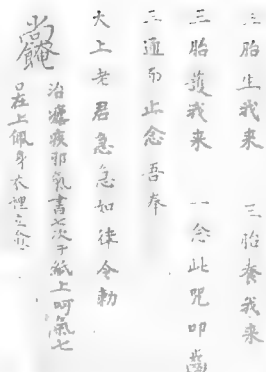 三胎生我来　三胎养我来
三胎護我来　一念此咒叩齒
三通而止念　吾奉
大上老君急急如律令勅
治瘧疾邪氣書七次于紙上呵氣七
口在上佩身衣裡立愈